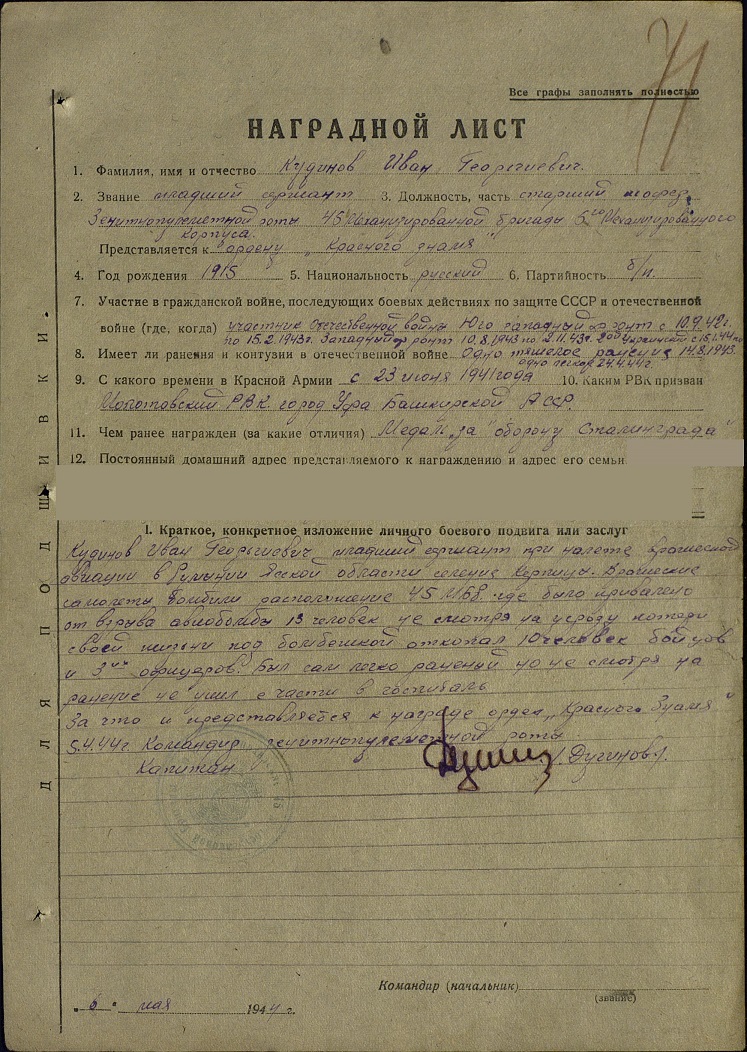 71
Все графы заполнять полностью
НАГРАДНОЙ ЛИСТ
1. Фамилия, имя и отчество Кудинов Иван Георгиевич.
2. Звание младший сержант 3. Должность, часть старший шофер
Зенитнопулеметной роты 45 Механизированной бригады 5го Механизированного
корпуса.
Представляется к ордену „Красного знамя"
4. Год рождения 1915 5. Национальность русский 6. Партийность б/п.
7. Участие в гражданской войне, последующих боевых действиях по защите СССР и отечественной
войне (где, когда) участник Отечественной войны Юго западный фронт с 10.9.42г.
по 15.2.1943г. Западный фронт 10.8.1943 по 2.11.43г. 2ой Украинский с 15.1.44
8. Имеет ли ранения и контузии в отечественной войне Одно тяжелое ранение 14.8.1943.
одно легкое 24.4.44г.
9. С какого времени в Красной Армии с 23 июня 1941 года 10. Каким РВК призван
РВК. город Уфа Башкирской АССР.
11. Чем ранее награжден (за какие отличия) Медаль „за оборону Сталинграда"
12. Постоянный домашний адрес представляемого к награждению и адрес его семьи
I. Краткое, конкретное изложение личного боевого подвига или заслуг
Кудинов Иван Георгиевич младший сержант при налете вражеской
авиации в Румынии Ясской области селение Вражеские
самолеты бомбили расположение 45 МБр. где было привалено
от взрыва авиобомбы 13 человек не смотря на угрозу
своей жизни под бомбежкой откопал 10 человек бойцов
и 3их офицеров. Был сам легко раненый но не смотря на
ранение не ушел с части в госпиталь
За что и представляется к награде орден „Красного Знамя"
5.4.44г. Командир зенитнопулеметной роты
Капитан
„6" мая 1944 г.
Командир (начальник)
(звание)
ДЛЯ ПОДШИВКИ